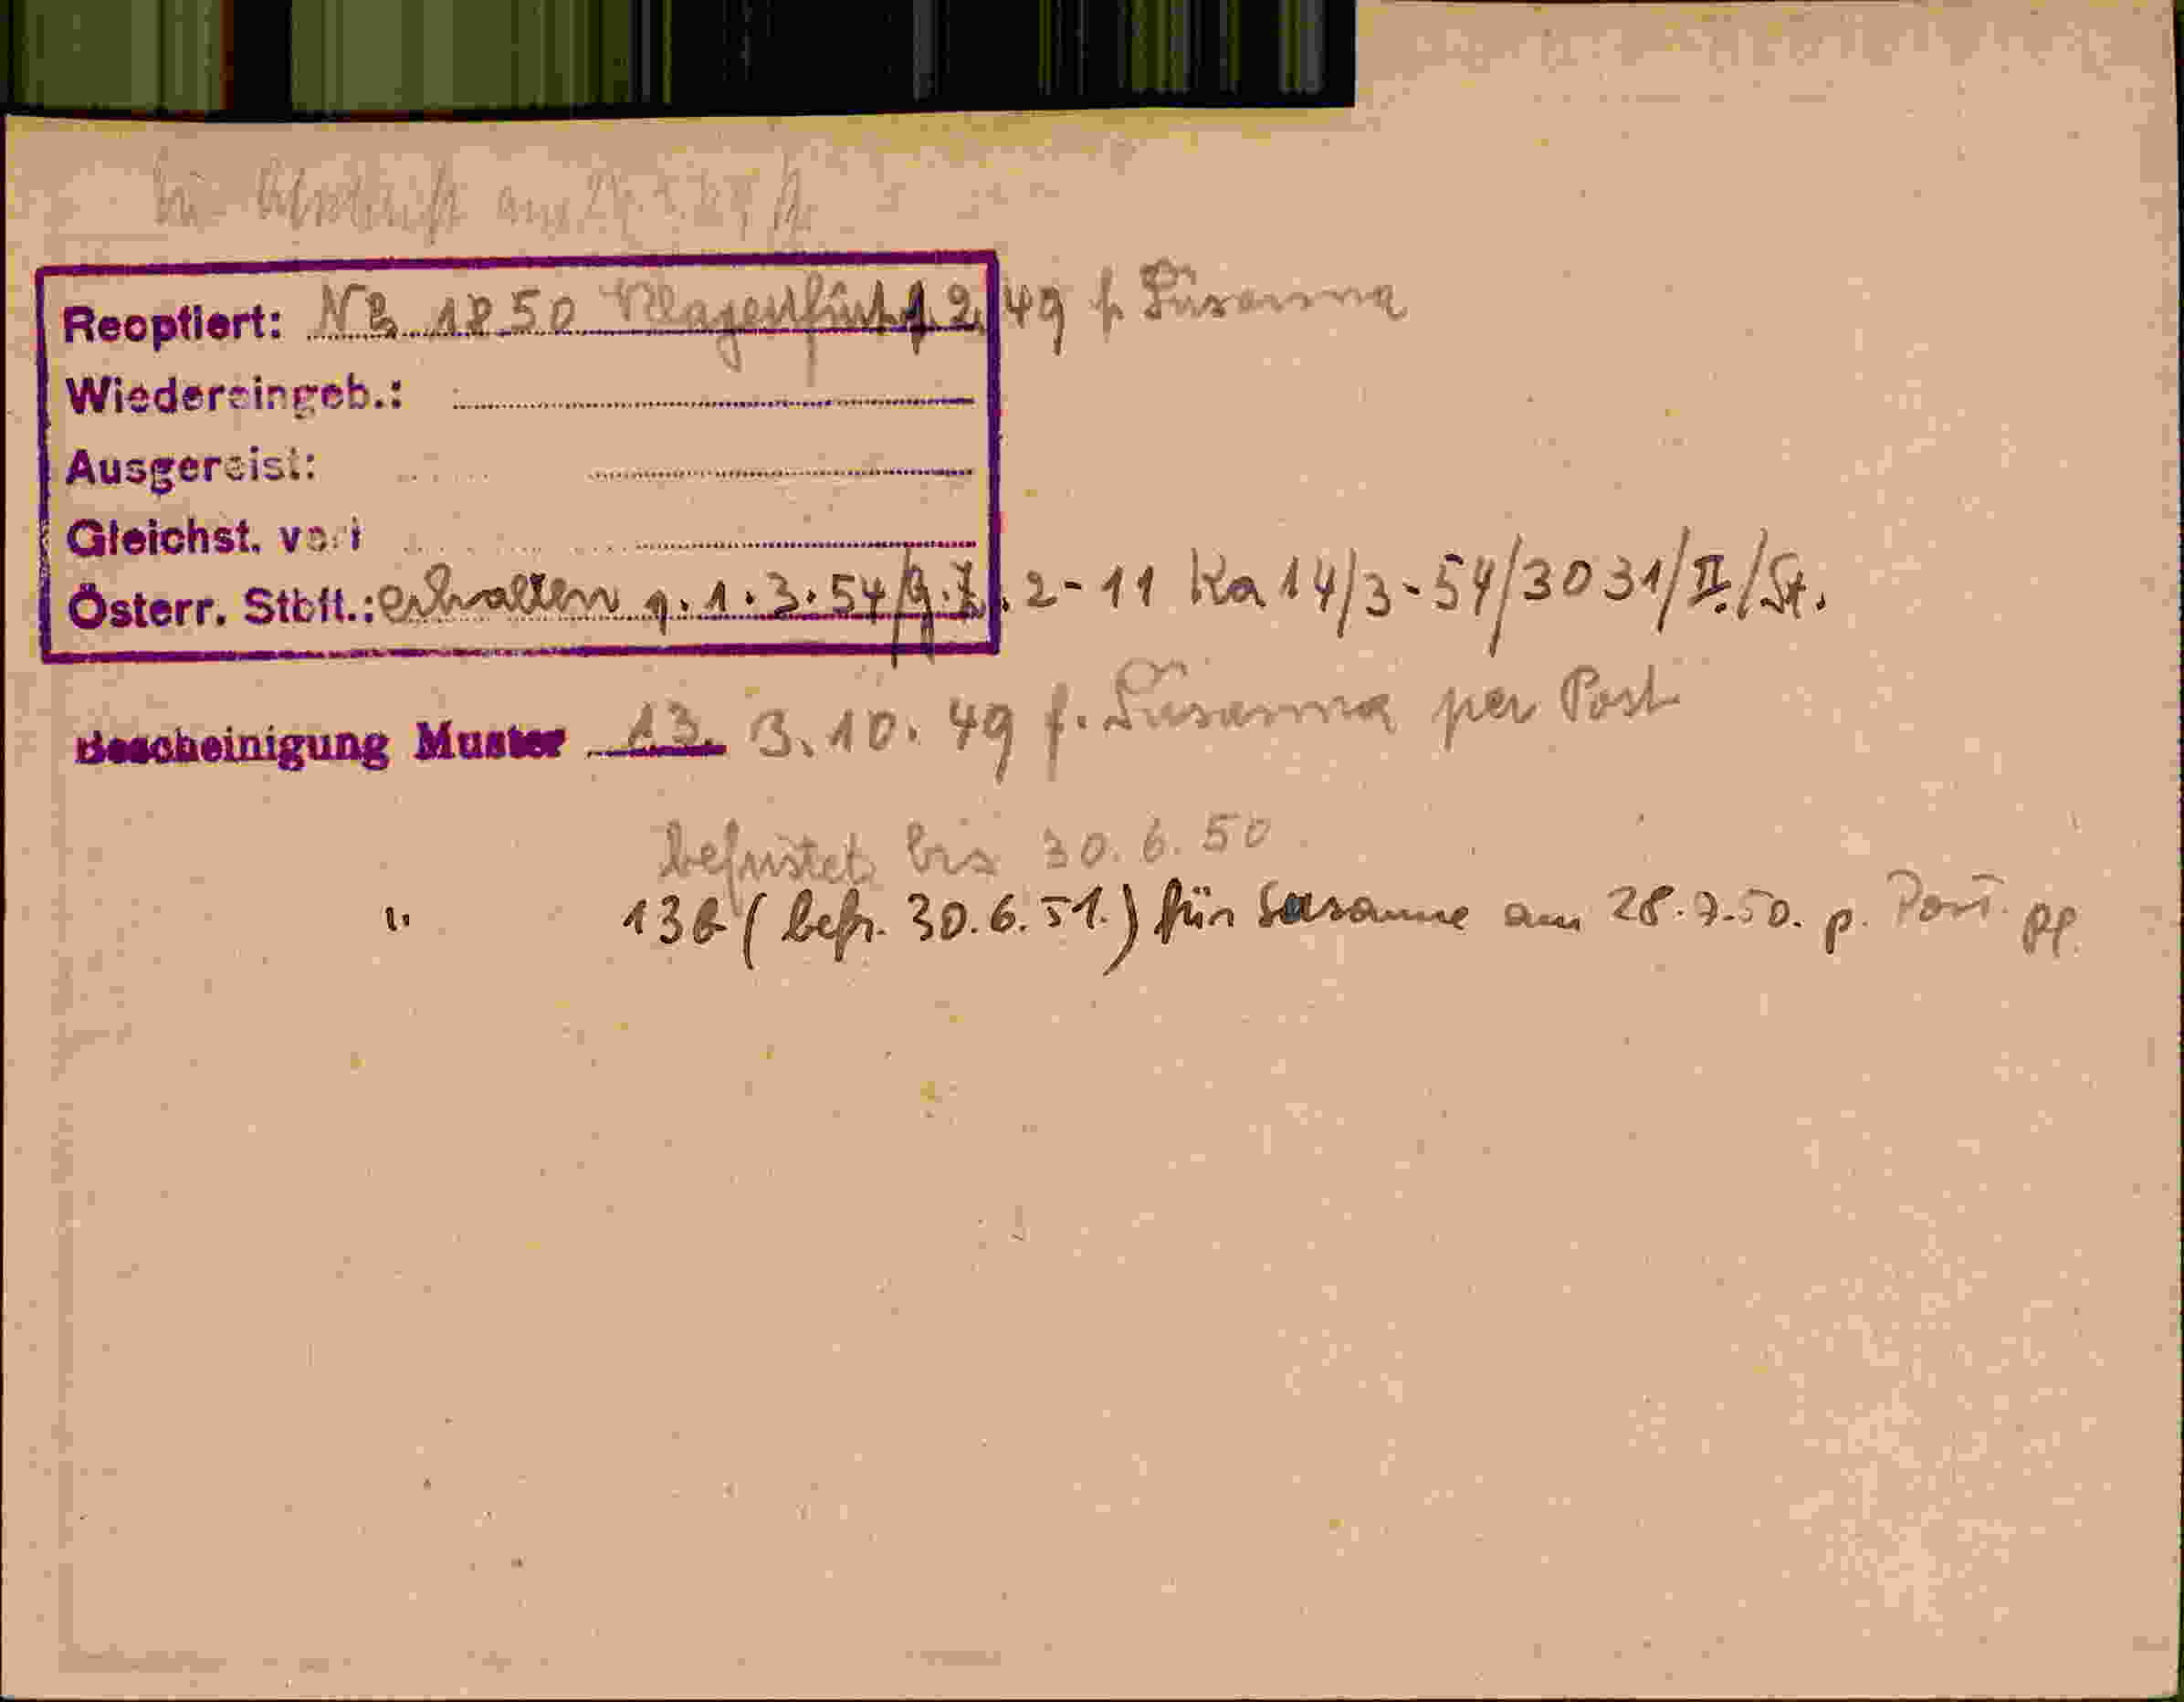 Reoptiert: NB 1850 Klagenfurt 1.2.49 f. Susanna
Wiedereingeb.:
Ausgereist:
Gleichst. v
Österr. Stbft.: erhalten 1.3.54/ 2-11 Ka 14/3-54/3031/II./St.
Bescheinigung Muster 13. 3.10.49 f. Susanna per Post
befristet bis 30.6.50
" 13b (befr. 30.6.51.) für Susanne am 28.7.50. p. Post.